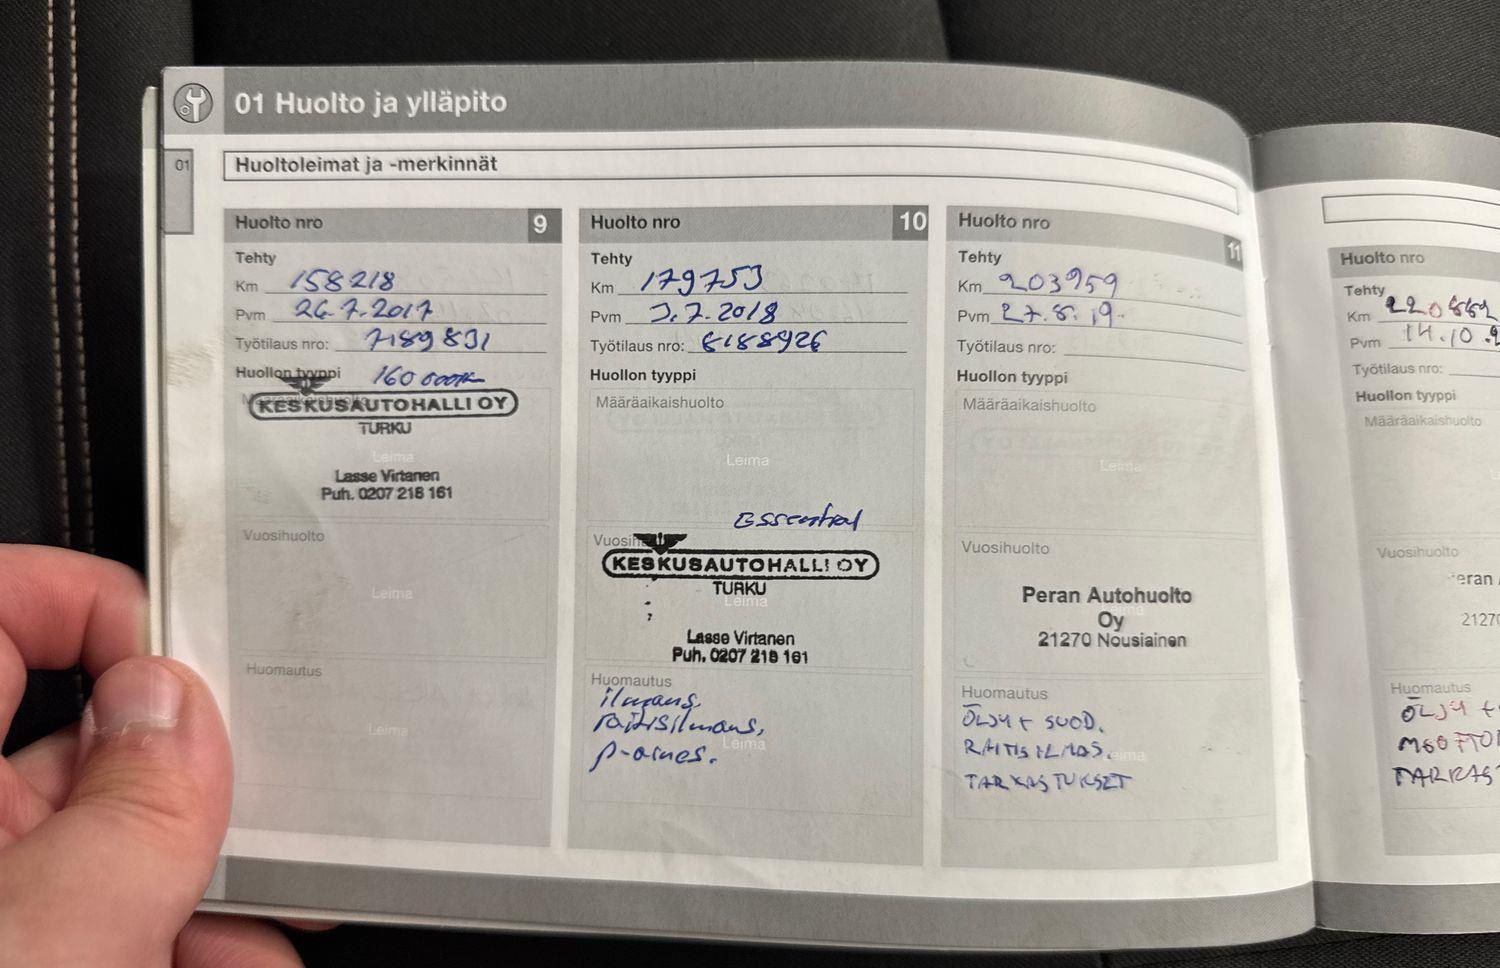 01 Huolto ja ylläpito
01
Huoltoleimat ja -merkinnät
Huolto nro 9
Tehty
Km 158218
Pvm 26.7.2017
Työtilaus nro: 7189831
Huollon tyyppi 160 000
KESKUSAUTOHALLI OY
TURKU
Leima
Lasse Virtanen
Puh. 0207 218 161
Vuosihuolto
Leima
Huomautus
Leima
Huolto nro 10
Tehty
Km 179753
Pvm 3.7.2018
Työtilaus nro: 8188926
Huollon tyyppi
Määräaikaishuolto
Leima
Essential
KESKUSAUTOHALLI OY
TURKU
Leima
Lasse Virtanen
Puh. 0207 218 161
Huomautus
ilmans.
raitisilmans.
Leima
Huolto nro 11
Tehty
Km 203959
Pvm 27.8.19.
Työtilaus nro:
Huollon tyyppi
Määräaikaishuolto
Leima
Vuosihuolto
Peran Autohuolto
Leima
Oy
21270 Nousiainen
Huomautus
ÖLJY + SUOD.
RAITISILMAS.
Leima
TARKASTUKSET
Huolto nro
Tehty
Km 220882
Pvm 14.10.
Työtilaus nro:
Huollon tyyppi
Määräaikaishuolto
Vuosihuolto
eran
2127
Huomautus
ÖLJY +
TARKAS